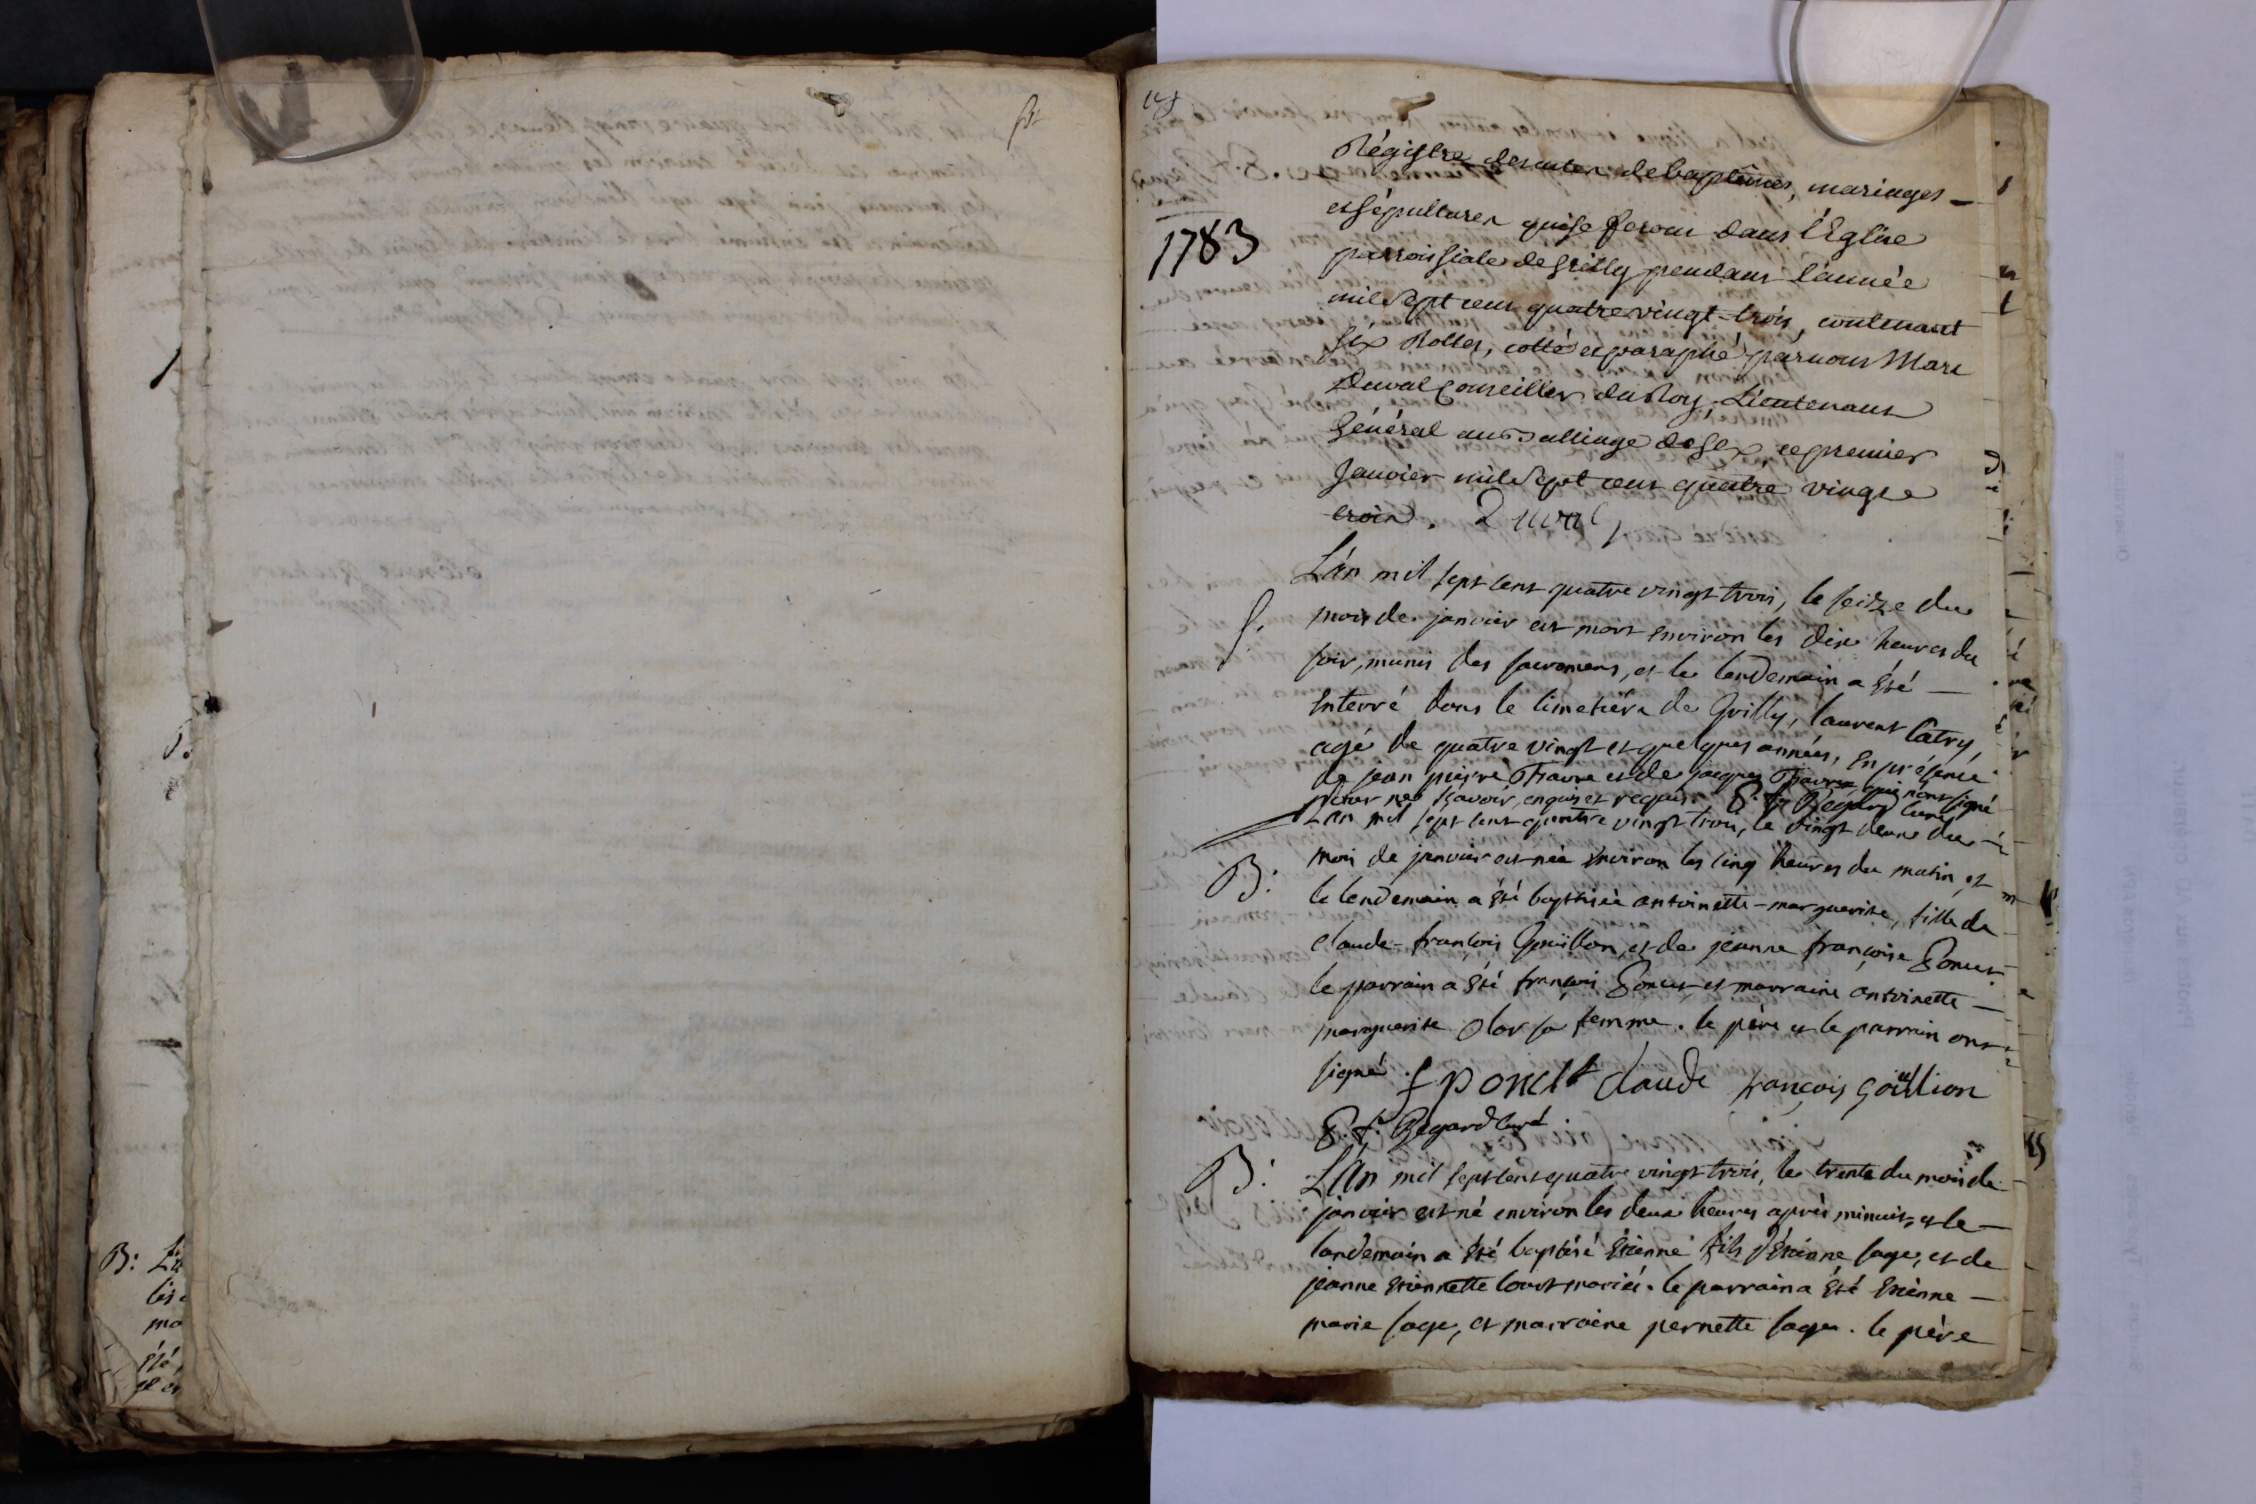 1783
Régistre des actes de baptêmes, mariages
et sépultures qui se feront dans l'Eglise
parroissiale de Grilly pendant l'année
mil sept cent quatre vingt-trois, contenant
six Rolles, cotté et paraphé par nous Marc
Duval Conseiller du Roy, Lieutenant
Général au Balliage de Gex, ce premier
Janvier mil sept cent quatre vingt
trois. Duval
S.
L'an mil sept cent quatre vingt trois, le seize du
mois de janvier est mort environ les dix heures du
soir, munis des sacremens, et le lendemain a été
enterré dans le cimetière de Grilly, laurent Catry,
agé de quatre vingt et quelques années, en présence
de jean pierre Travre et de jacques Travre qui n'ont signé
pour ne sçavoir, enquis et requis. P. f. Regard curé
B:
L'an mil sept cent quatre vingt trois, le vingt deux du
mois de janvier est née environ les cinq heures du matin, et
le lendemain a été baptisée antoinette-marguerite, fille de
claude-françois Goüillon, et de jeanne françoise Poncet
le parrain a été françois Poncet, et marraine antoinette
marguerite olor sa femme. le père et le parrain ont
signé. f poncet claude françois goüillion
P. f. Regard curé
B:
L'an mil sept cent quatre vingt trois, le trente du mois de
janvier est né environ les deux heures après minuit, et le
landemain a été baptisé étienne fils d'étienne sage, et de
jeanne étiennette louot mariés. le parrain a été étienne
marie sage, et marraine pernette sage. le père
B: